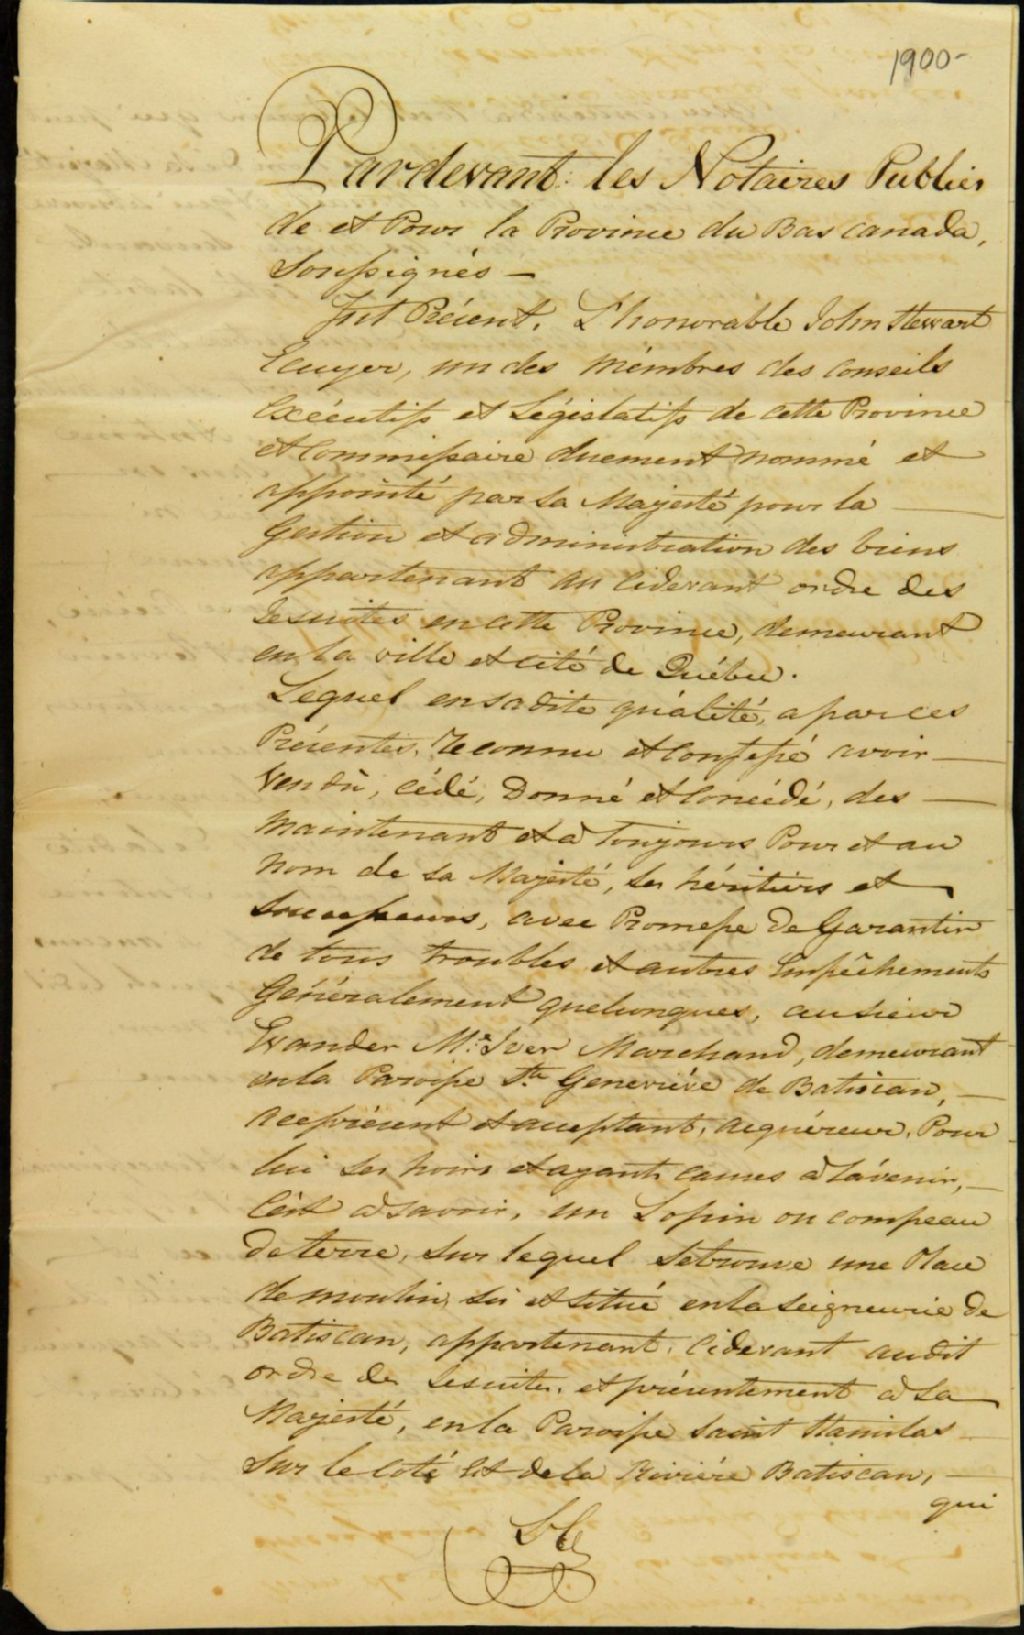 1900-
Pardevant les Notaires Publics
de et Pour la Province du Bas Canada,
Soussignés —
Fut Présent, L'honorable John Stewart
Ecuyer, un des Mémbres des Conseils
Exécutifs et Législatifs de cette Province
et Commissaire duement nommé et
appointé par Sa Majesté pour la
Gestion et administration des biens
appartenant au cidevant ordre des
Jesuites en cette Province, demeurant
en la ville et cité de Québec.
Lequel en sa dite quálité, a par ces
Présentes, reconnu et confessé avoir
Vendû, cédé, Donné et Concédé, des
maintenant et à Toujours Pour et au
Nom de Sa Majesté, ses héritiers et
Successeurs, avec Promesse de Garantir
de tous troubles et autres Empêchements
Généralement quelconques, au Sieur
Evander Mc Iver Marchand, demeurant
en la Paroisse Ste Geneviéve de Batiscan,
a ce présent et acceptant, acquéreur, Pour
lui ses hoirs et ayants causes à l'ávenir,
C'est à Savoir, un Lopin ou compeau
de terre, Sur lequel Se trouve une Place
de moulin, sis et situé en la Seigneurie de
Batiscan, appartenant cidevant audit
ordre des Jesuites, et présentement à Sa
Majesté, en la Paroisse Saint Stanislas
Sur le coté Est de la Riviére Batiscan,
qui